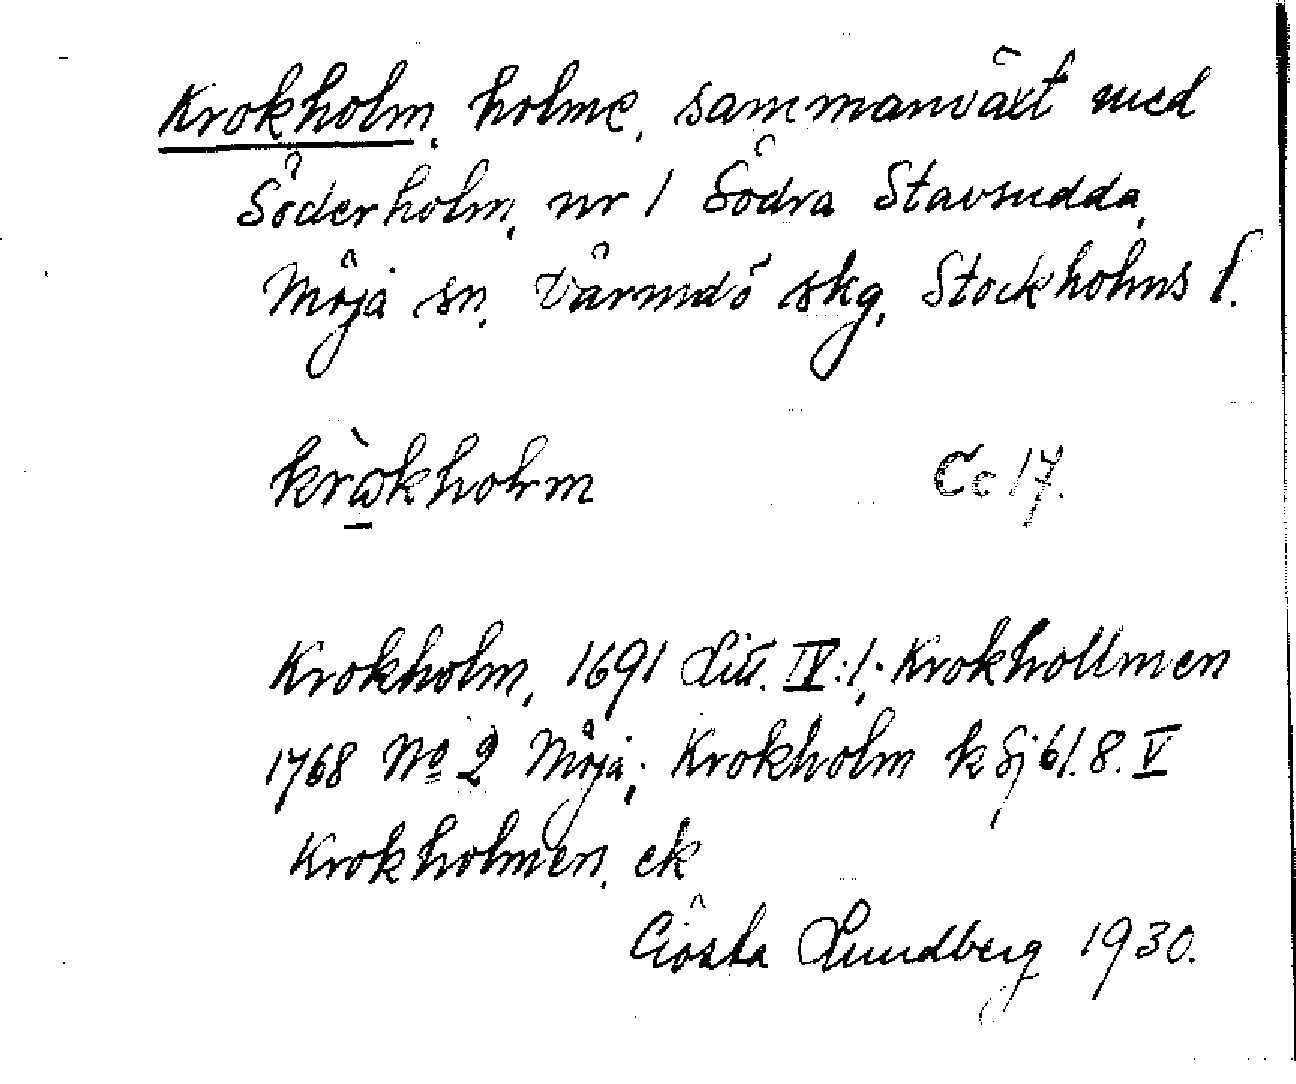 Krokholm, holme, sammanväxt med
Söderholm, nr 1 Södra Stavsudda,
Möja sn, Värmdö skg, Stockholms l.
krὼkholm Cc 17.
Krokholm, 1691 Litt. IV:1; Krokhollmen
1768 No 2 Möja; Krokholm k Sj 61.8.V
Krokholmen, ek
Gösta Lundberg 1930.